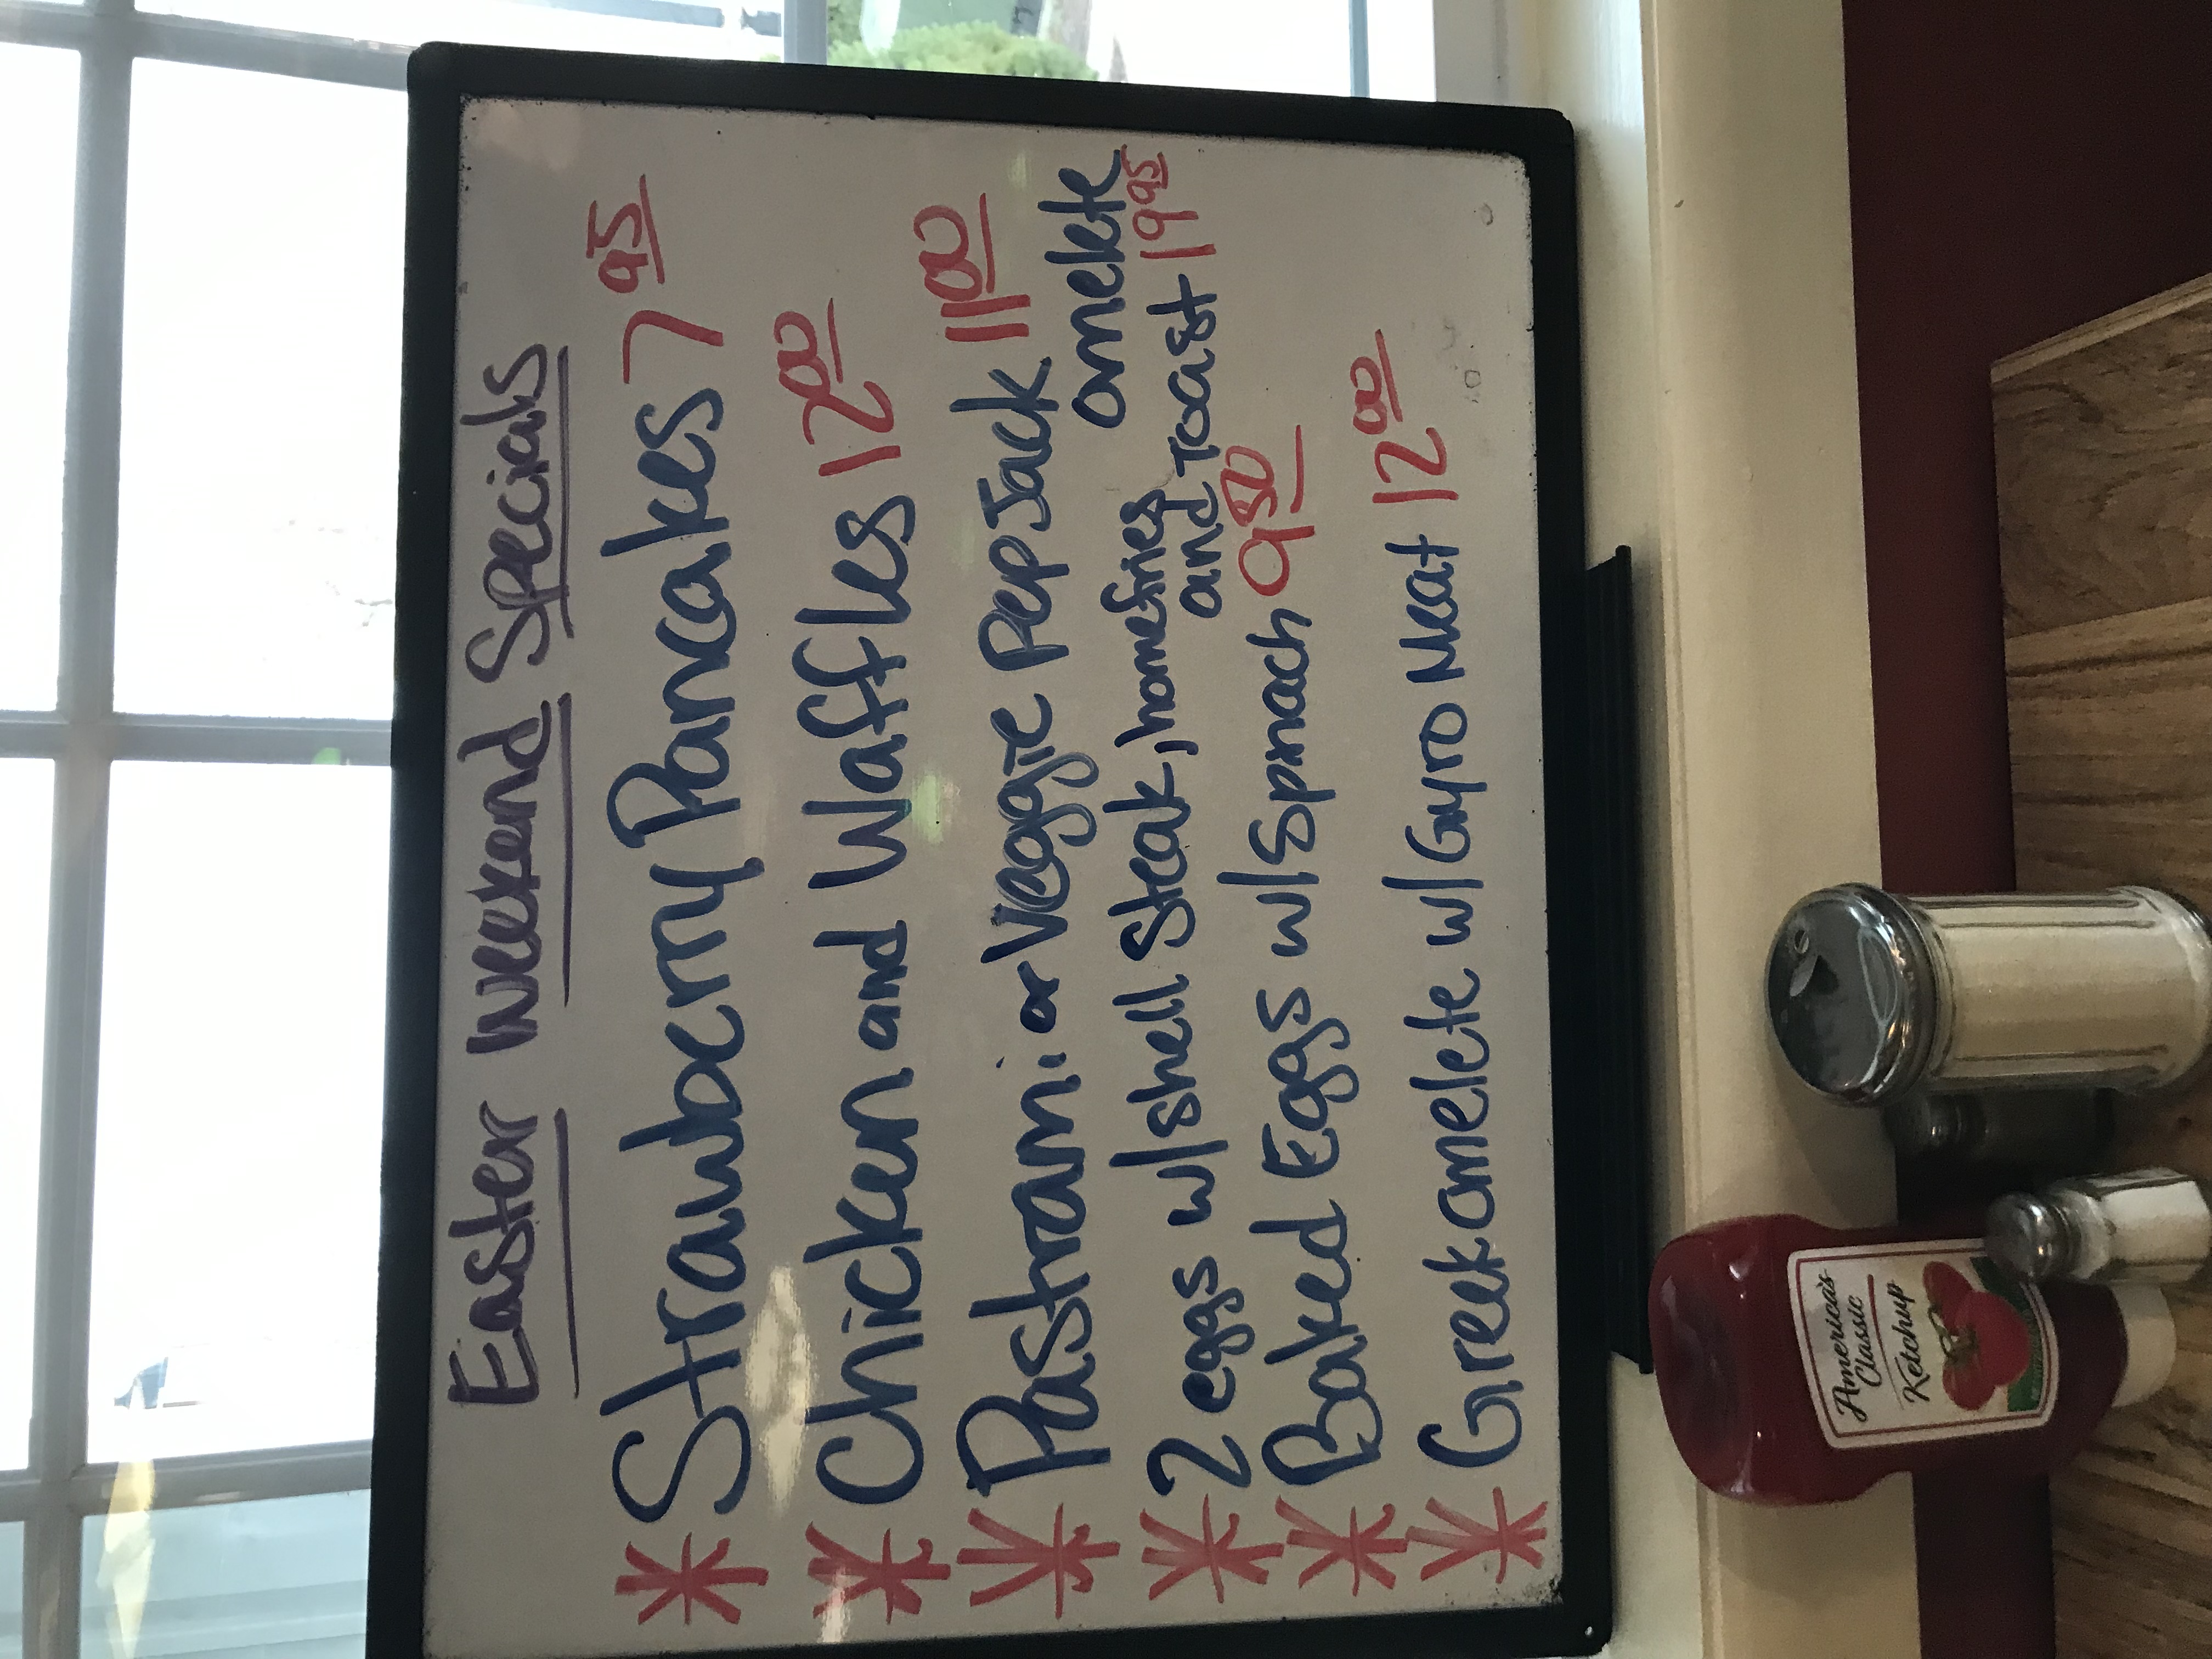 Easter Weekend Specials
* Strawberry Pancakes 7 95
* Chicken and Waffles 12 00
* Pastrami or Veggie Pep Jack 11 00
omelete
* 2 eggs w/ shell Steak, homefries
and toast 19 95
* Baked Eggs w/ Spinach 9 50
* Greek omelete w/ Gyro Meat 12 00
America's
Classic
Ketchup